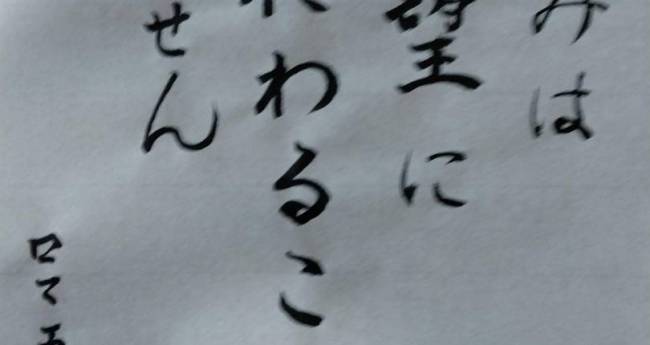 みは
望に
わるこ
せん
ロマ五